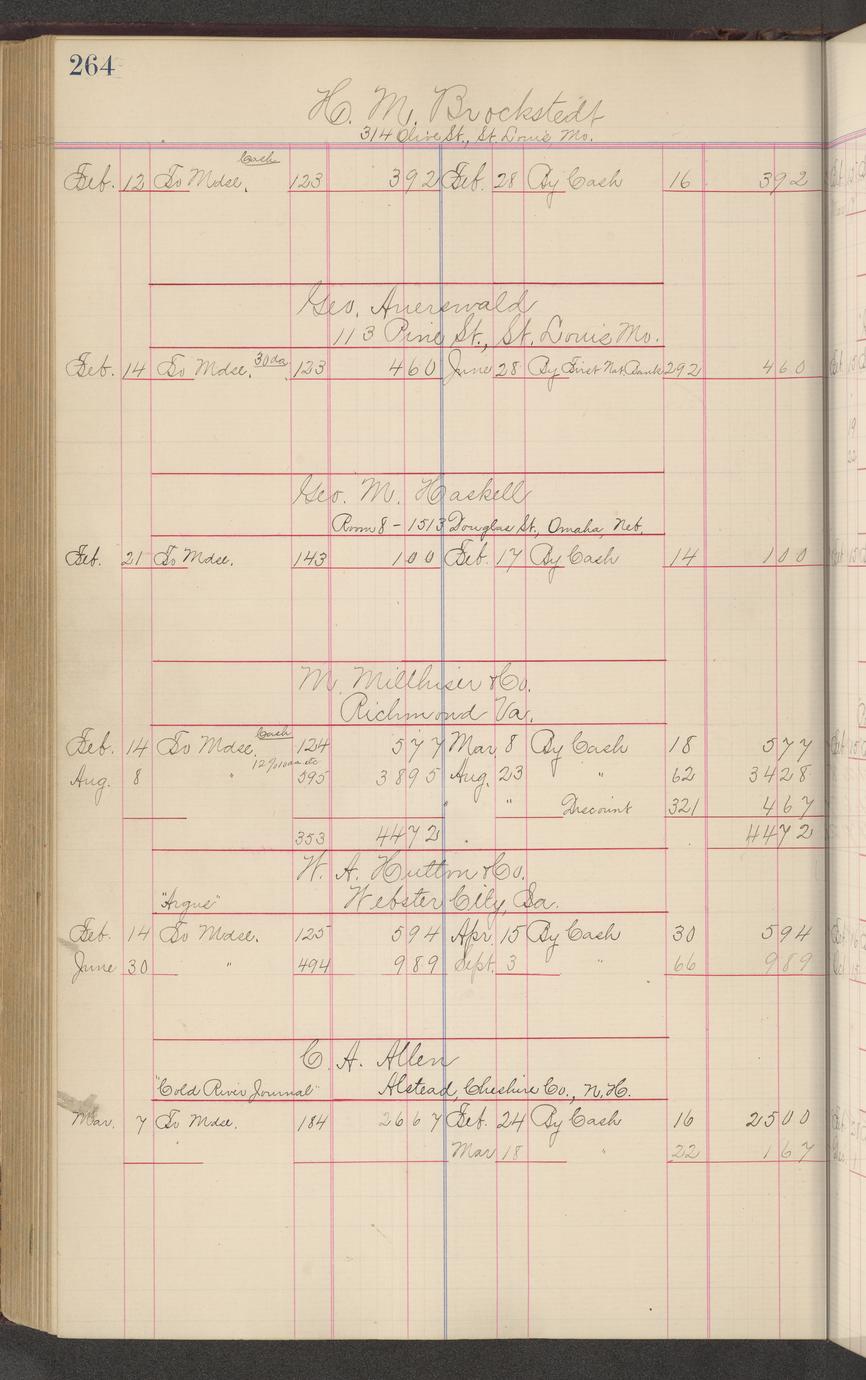 264
H. M. Brockstedt
314 Olive St., St. Louis Mo.
Cash
Feb. 12 To Mdse. 123 392 Feb. 28 By Cash 16 392
Geo. Auerswald
113 Pine St., St. Louis Mo.
Feb. 14 To Mdse. 30 da. 123 460 June 28 By First Nat. Bank 292 460
Geo. M. Haskell
Room 8 - 1513 Douglas St., Omaha, Neb.
Feb. 21 To Mdse. 143 100 Feb. 17 By Cash 14 100
M. Millhiser & Co.
Richmond Va.
Cash
Feb. 14 To Mdse. 124 577 Mar. 8 By Cash 18 577
Aug. 8 " 595 3895 Aug. 23 " 62 3428
" " Discount 321 467
353 4472 4472
W. A. Hutton & Co.
"Argus" Webster City, Ia.
Feb. 14 To Mdse. 125 594 Apr. 15 By Cash 30 594
June 30 " 494 989 Sept. 3 " 66 989
C. A. Allen
"Cold River Journal" Alstead, Cheshire Co., N.H.
Mar. 7 To Mdse. 184 2667 Feb. 24 By Cash 16 2500
Mar 18 " 22 167